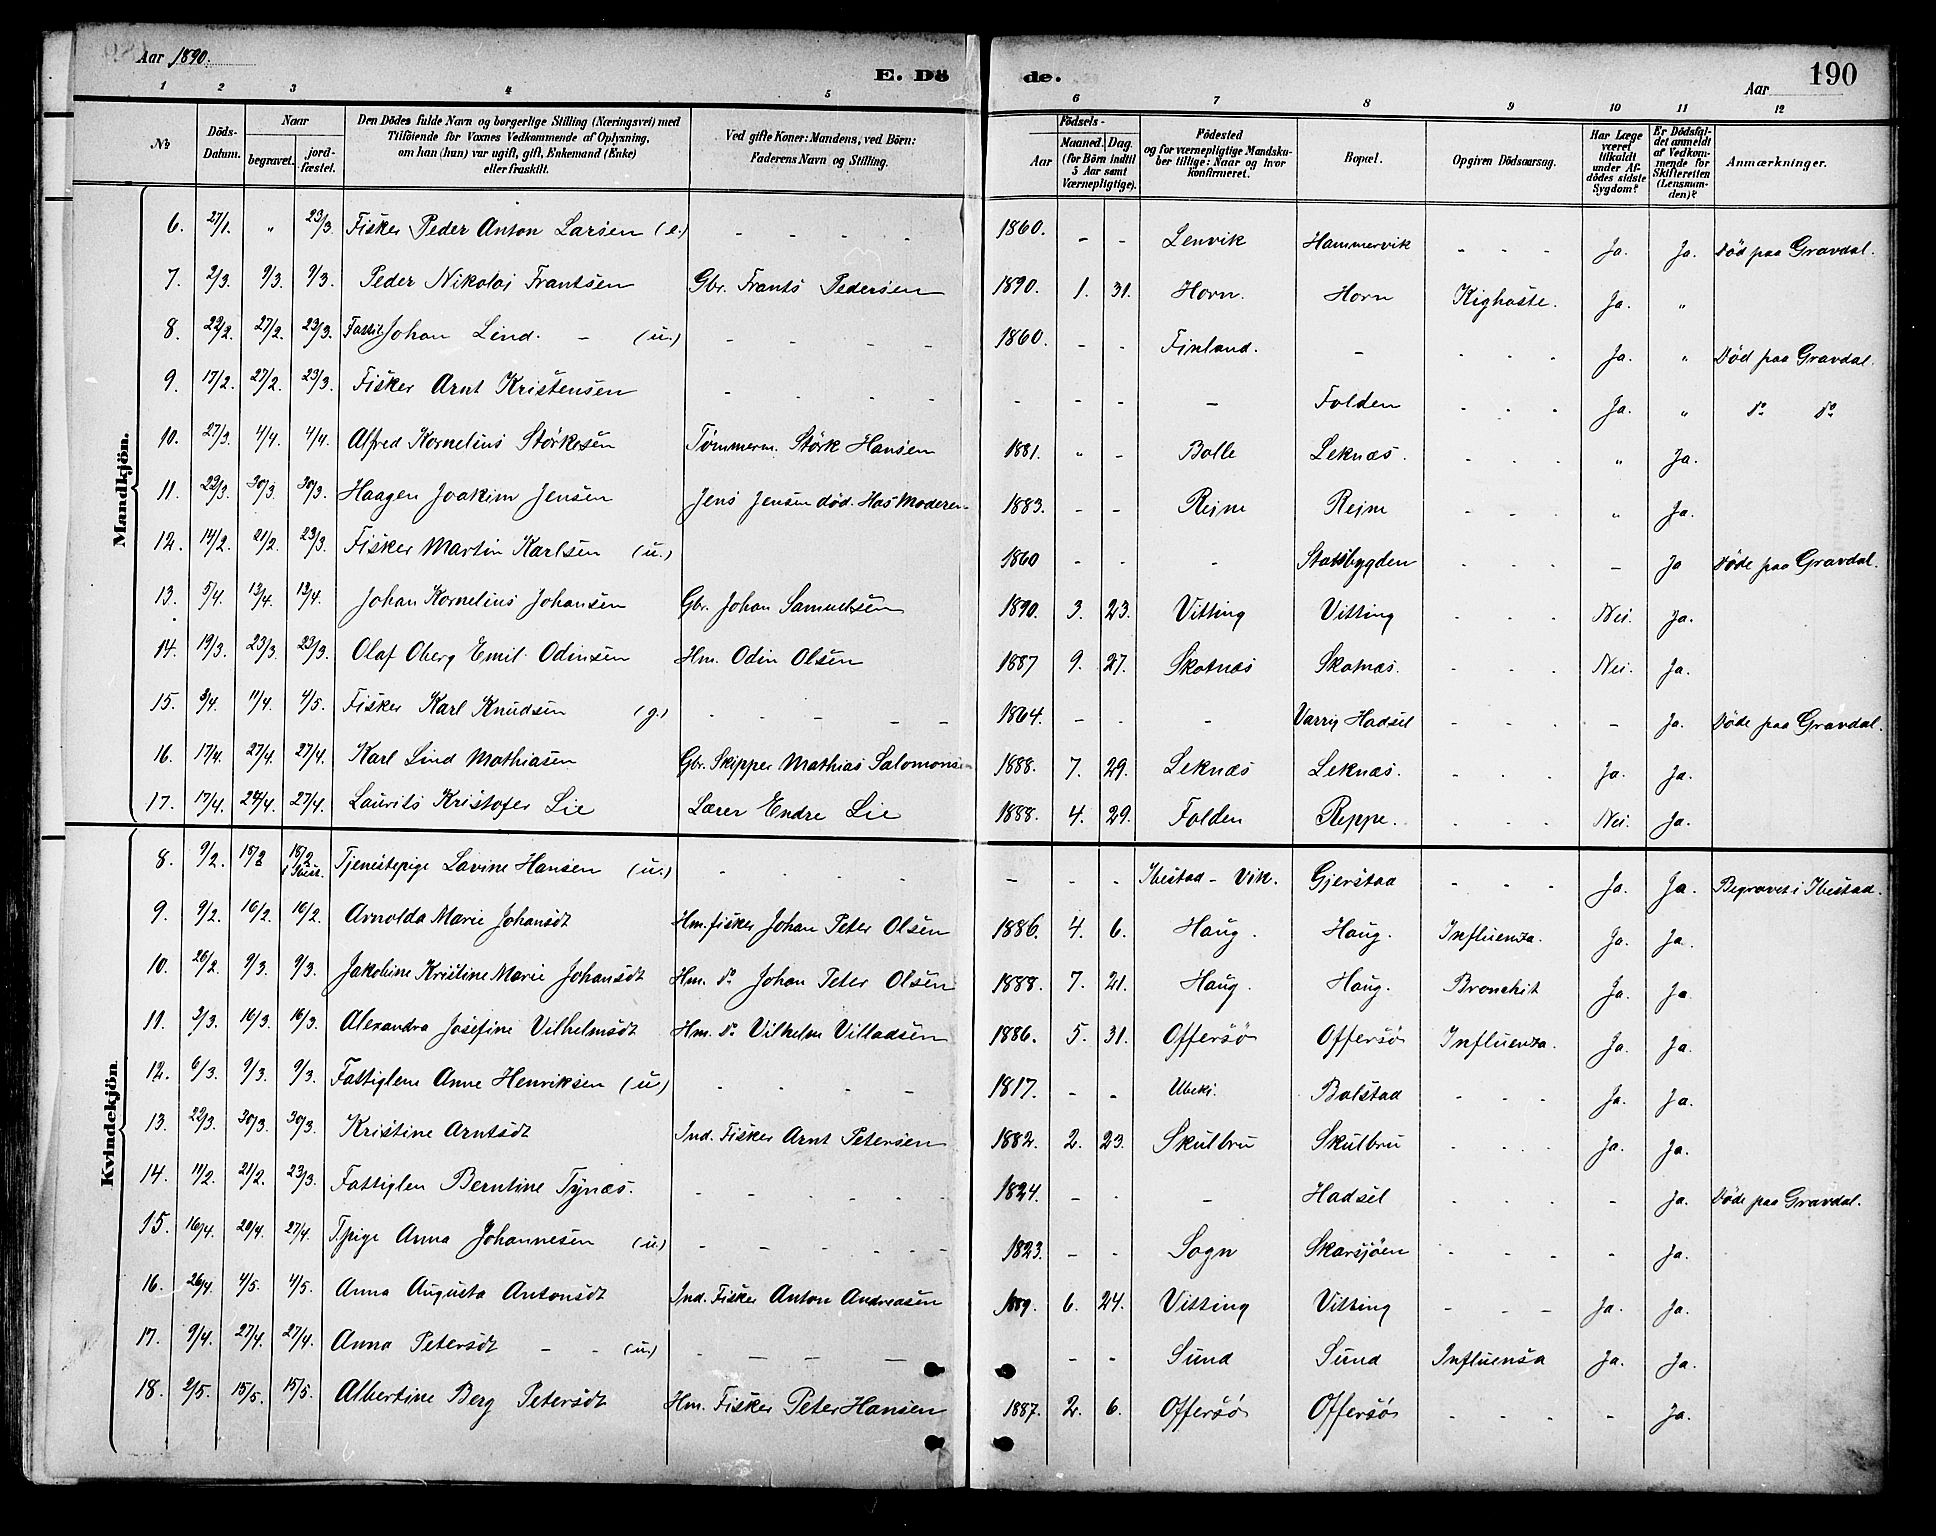 Aar 1890.
E. Döde.
Aar
190
1 2 3 4 5 6 7 8 9 10 11 12
№
Döds-Datum.
Naar
begravet.
jordfæstet.
Den Dödes fulde Navn og borgerlige Stilling (Næringsvei) med Tilföiende for Voxnes Vedkommende af Oplysning, om han (hun) var ugift, gift, Enkemand (Enke) eller fraskilt.
Ved gifte Koner: Mandens, ved Börn: Faderens Navn og Stilling.
Födsels-
Aar
Maaned. Dag. (for Börn indtil 5 Aar samt Værnepligtige).
Födested og for værnepligtige Mandskaber tillige: Naar og hvor konfirmeret.
Bopæl.
Opgiven Dödsaarsag.
Har Læge været tilkaldt under Afdödes sidste Sygdom?
Er Dödsfaldet anmeldt af Vedkommende for Skifteretten (Lensmanden)?
Anmærkninger.
Mandkjön.
6. 27/1. " 23/3. Fisker Peder Anton Larsen (e.) - - - - 1860. - - Lenvik Hammervik - - - Ja. Ja. Død paa Gravdal.
7. 2/3. 9/3. 9/3. Peder Nikolai Frantsen Gbr. Frants Pedersen 1890. 1. 31. Horn. Horn Kighoste. Ja. "
8. 22/2. 27/2. 23/3. Fattil. Johan Lind. - (u.) - - - - 1860. - - Finland. - - - - Ja. " Død paa Gravdal.
9. 17/2. 27/2. 23/3. Fisker Arnt Kristensen - - - - - - - - Folden - - - Ja. " do do
10. 27/3. 4/4. 4/4. Alfred Kornelius Størkesen Tømmerm. Størk Hansen 1881. " - Bolle Leknæs. - - - " Ja.
11. 22/3. 30/3. 30/3. Haagen Joakim Jensen Jens Jensen død. Hos Moderen 1883. - - Rejne Rejne - - - " Ja.
12. 14/2. 21/2. 23/3. Fisker Martin Karlsen (u.) 1860 - - - Statsbygden - - - - Ja Døde paa Gravdal.
13. 5/4. 13/4. 13/4. Johan Kornelius Johansen Gbr. Johan Samuelsen 1890. 3. 23. Vitting Vitting - - - Nei. Ja.
14. 19/3. 23/3. 23/3. Olaf Oberg Emil Odinsen Hm. Odin Olsen 1887 9. 27. Skotnæs Skotnæs. - - - Nei. Ja.
15. 3/4. 11/4. 4/5. Fisker Karl Knudsen (g.) - - - - - 1864. - - - Hadsel - - - - Ja. Døde paa Gravdal.
16. 17/4. 27/4. 27/4. Karl Lind Mathiasen Gbr. Skipper Mathias Salomonsen 1888. 7. 29. Leknæs Leknæs. - - - Ja. Ja.
17. 17/4. 24/4. 27/4. Laurits Kristofer Lie Lærer Endre Lie 1888. 4. 29. Folden Reppe. - - - Nei. Ja.
Kvindekjön
8. 9/2. 18/2 18/2 Tjenestepige Lavine Hansen (u.) - - - - - - - Ibestad - Vik. Gjerstad - - - Ja. Ja. Begravet i Ibestad.
9. 9/2. 16/2. 16/2. Arnolda Marie Johansdt Hm. fisker Johan Peter Olsen 1886. 4. 6. Haug. Haug. Influenza. Ja. Ja.
10. 26/2. 9/3. 9/3. Jakobine Kristine Marie Johansdt Hm. do Johan Peter Olsen 1888. 7. 21. Haug. Haug. Bronchit Ja. Ja.
11. 3/3. 16/3. 16/3. Alexandra Josefine Vilhelmsdt Hm. do Vilhelm Villadsen 1886. 5. 31. Offersø Offersø Influenza. Ja. Ja.
12. 6/3. 9/3. 9/3. Fattiglem Anne Henriksen (u.) - - - - 1817. - - Ubek. Bolstad - - - Ja. Ja.
13. 22/3. 30/3. 30/3. Kristine Arntsdt Ind. Fisker Arnt Petersen 1882. 2. 23. Skulbru Skulbru - - - Ja. Ja.
14. 11/2. 21/2. 23/3. Fattiglem Berntine Tynæs. - - - - - 1824. - - - Hadsel - - - - Ja. Døde paa Gravdal.
15. 16/4. 20/4. 27/4. T.pige Anna Johannesen (u.) - - - - - 1823. - - Sogn Skarsjøen - - - - Ja.
16. 26/4. 4/5. 4/5. Anna Augusta Antonsdt Ind. Fisker Anton Andreasen 1889. 6. 24. Vitting Vitting - - - Ja. Ja.
17. 9/4. 27/4. 27/4. Anna Petersdt - - (u.) - - - - - - Sund Sund Influensa Ja. Ja.
18. 2/5. 15/5. 15/5. Albertine Berg Petersdt Hm. Fisker Peter Hansen 1887. 2. 6. Offersø Offersø - - - - Ja.